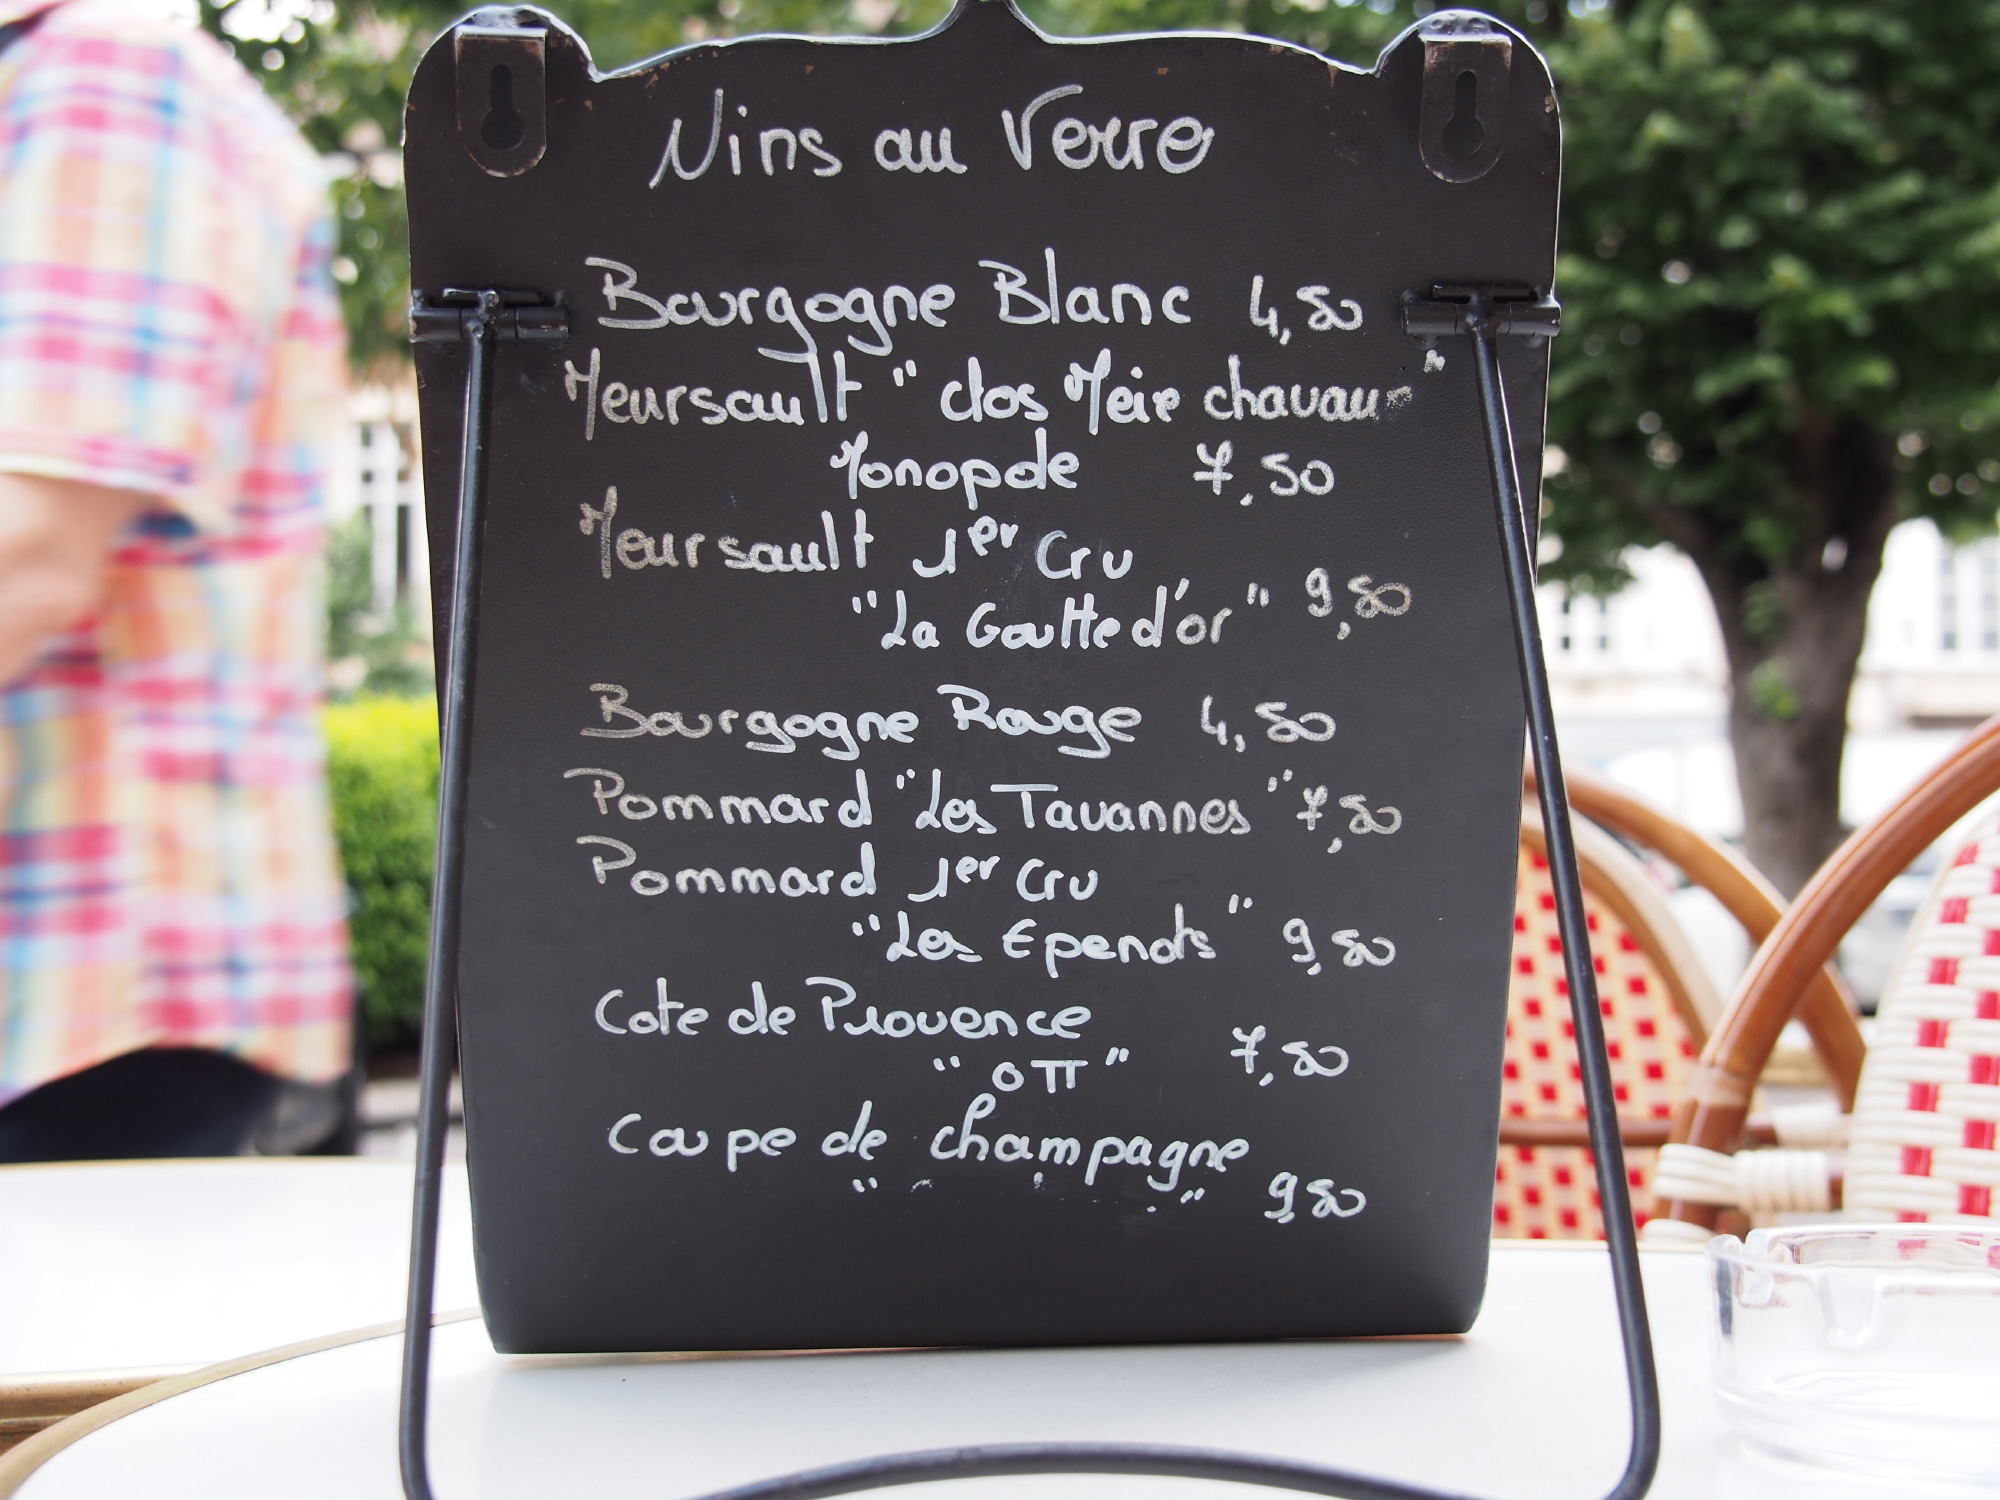 Vins au Verre
Bourgogne Blanc 4,50
Meursault "clos Meix chavaux"
Monopole 7,50
Meursault 1er Cru
"La Goutte d'or" 9,50
Bourgogne Rouge 4,50
Pommard "Les Tavannes" 7,50
Pommard 1er Cru
"Les Epenots" 9,50
Cote de Provence
"OTT" 7,50
Coupe de champagne
" " 9,50